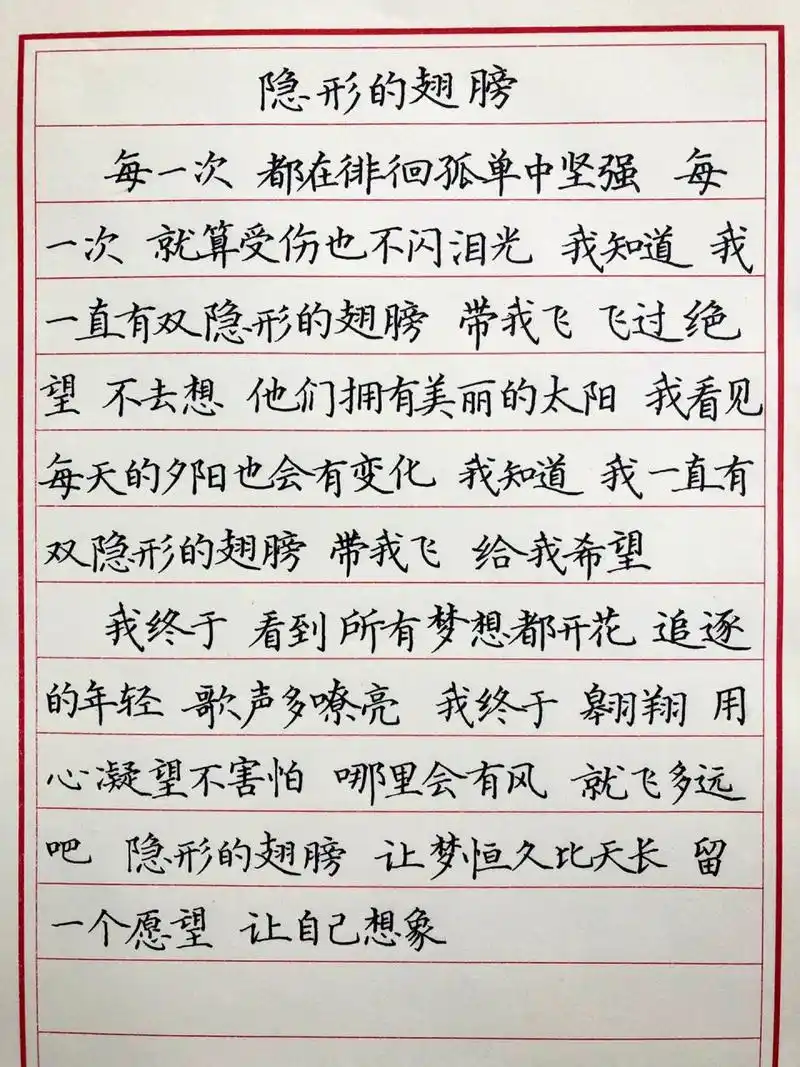 隐形的翅膀
每一次 都在徘徊孤单中坚强 每
一次 就算受伤也不闪泪光 我知道 我
一直有双隐形的翅膀 带我飞 飞过绝
望 不去想 他们拥有美丽的太阳 我看见
每天的夕阳也会有变化 我知道 我一直有
双隐形的翅膀 带我飞 给我希望
我终于 看到所有梦想都开花 追逐
的年轻 歌声多嘹亮 我终于 翱翔 用
心凝望不害怕 哪里会有风 就飞多远
吧 隐形的翅膀 让梦恒久比天长 留
一个愿望 让自己想象